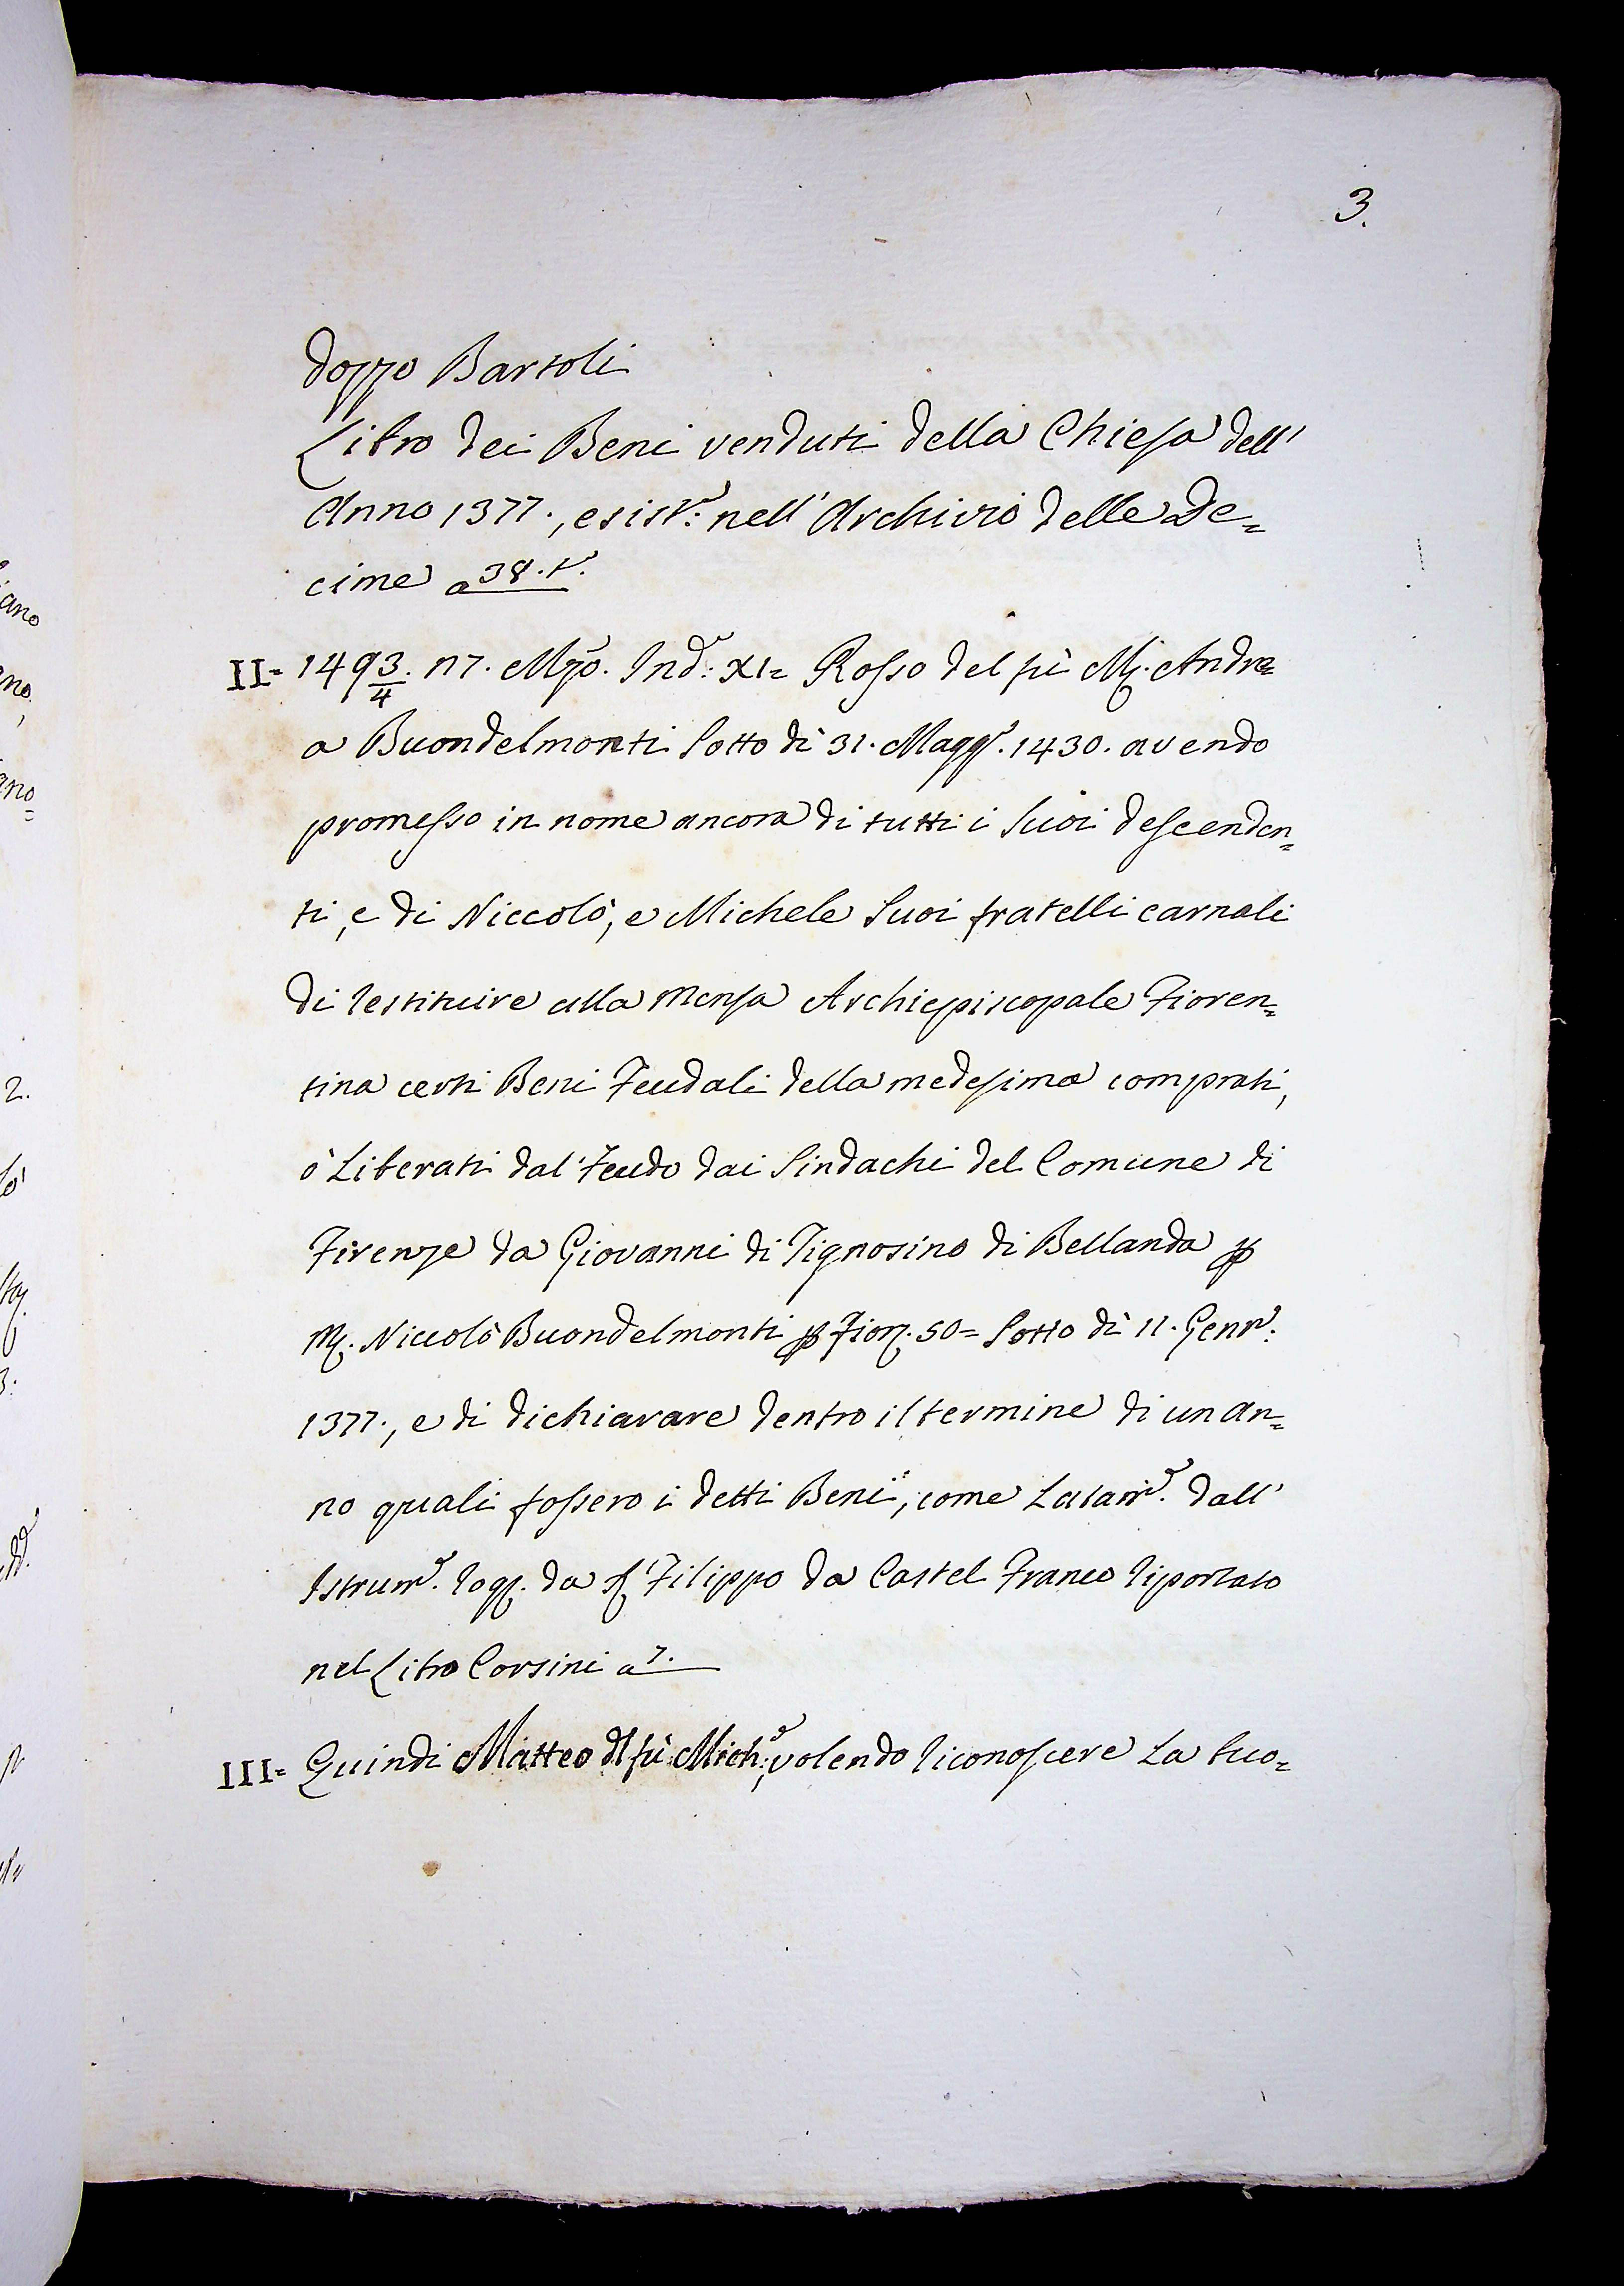 3.
doppo Bartoli
Libro dei Beni venduti della Chiesa dell'
Anno 1377., esist.e nell' Archivio delle De=
cime a 38. t.o
II= 1493/4. 17. Mzo. Ind.e XI= Rosso del fù M. Andre=
a Buondelmonti Sotto dì 31. Magg.o 1430. avendo
promesso in nome ancora di tutti i Suoi descenden=
ti, e di Niccolò, e Michele Suoi fratelli carnali
di restituire alla Mensa Archiepiscopale Fioren=
tina certi Beni Feudali della medesima comprati,
ò Liberati dal' feudo dai Sindachi del Comune di
Firenze da Giovanni di Tignosino di Bellanda p
M. Niccolò Buondelmonti p Fior. 50= Sotto dì 11. Genn.o
1377., e di dichiarare dentro il termine di un an=
no quali fossero i detti Beni, come Latam.e dall'
Istrum.o rog. da S. Filippo da Castel Franco riportato
nel Libro Corsini a 7.
III= Quindi Matteo dl fù Mich.e, volendo riconoscere La buo=